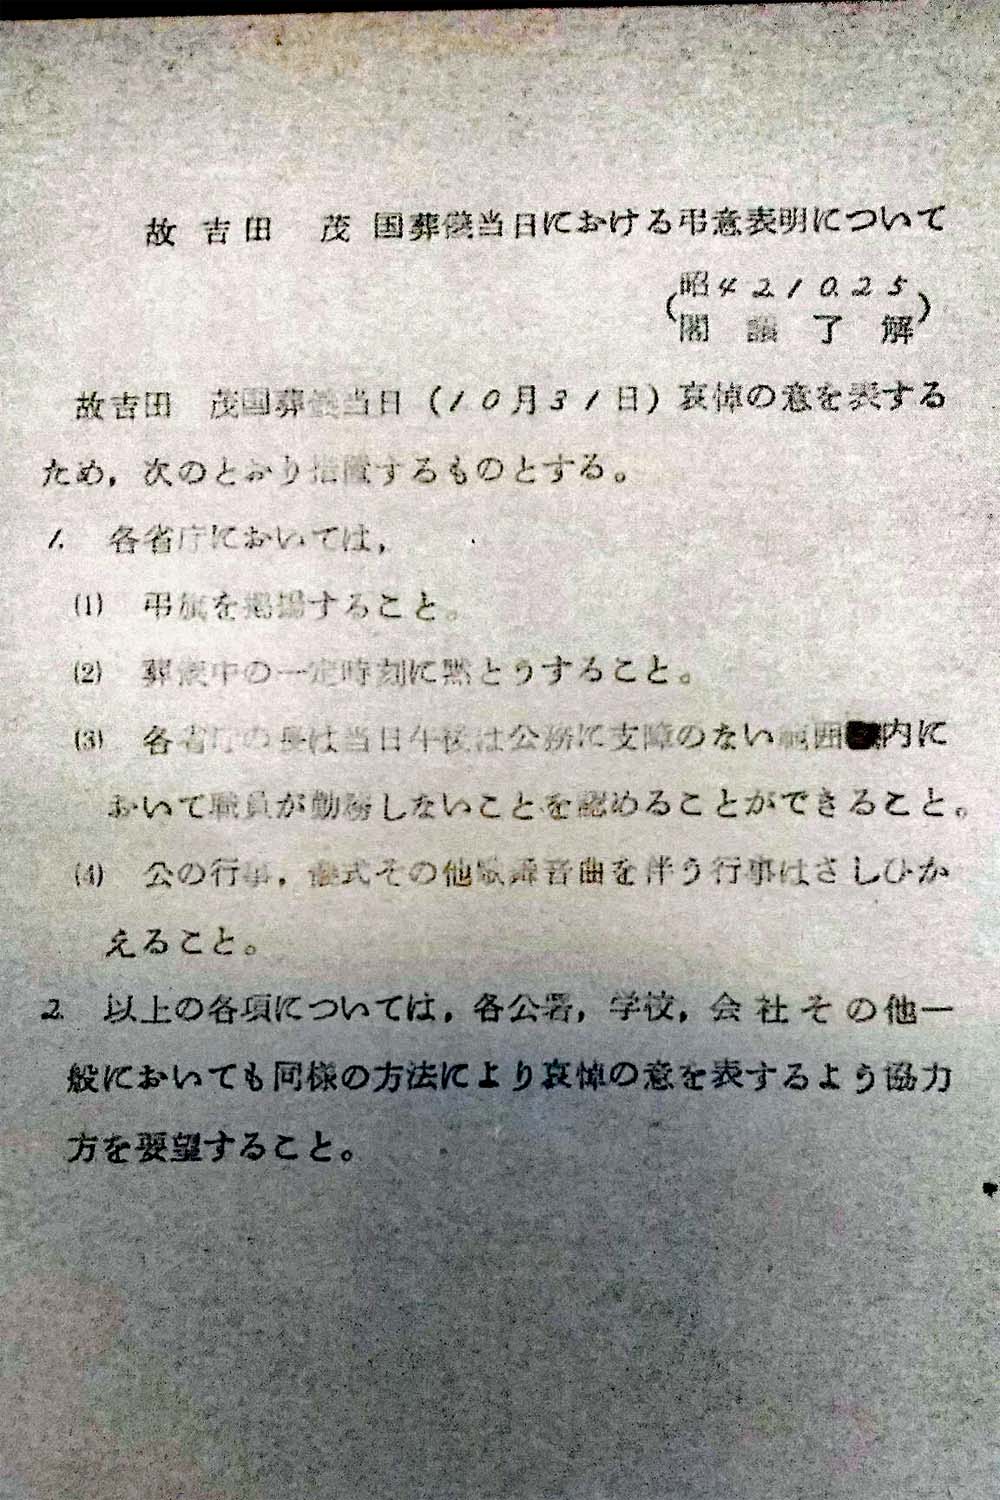 故 吉田　茂 国葬儀当日における弔意表明について
(昭42.10.25
閣議了解)
故吉田　茂国葬儀当日（10月31日）哀悼の意を表する
ため，次のとおり措置するものとする。
1.　各省庁においては，
(1)　弔旗を掲揚すること。
(2)　葬儀中の一定時刻に黙とうすること。
(3)　各省庁の長は当日午後は公務に支障のない範囲内に
おいて職員が勤務しないことを認めることができること。
(4)　公の行事，儀式その他歌舞音曲を伴う行事はさしひか
えること。
2.　以上の各項については，各公署，学校，会社その他一
般においても同様の方法により哀悼の意を表するよう協力
方を要望すること。